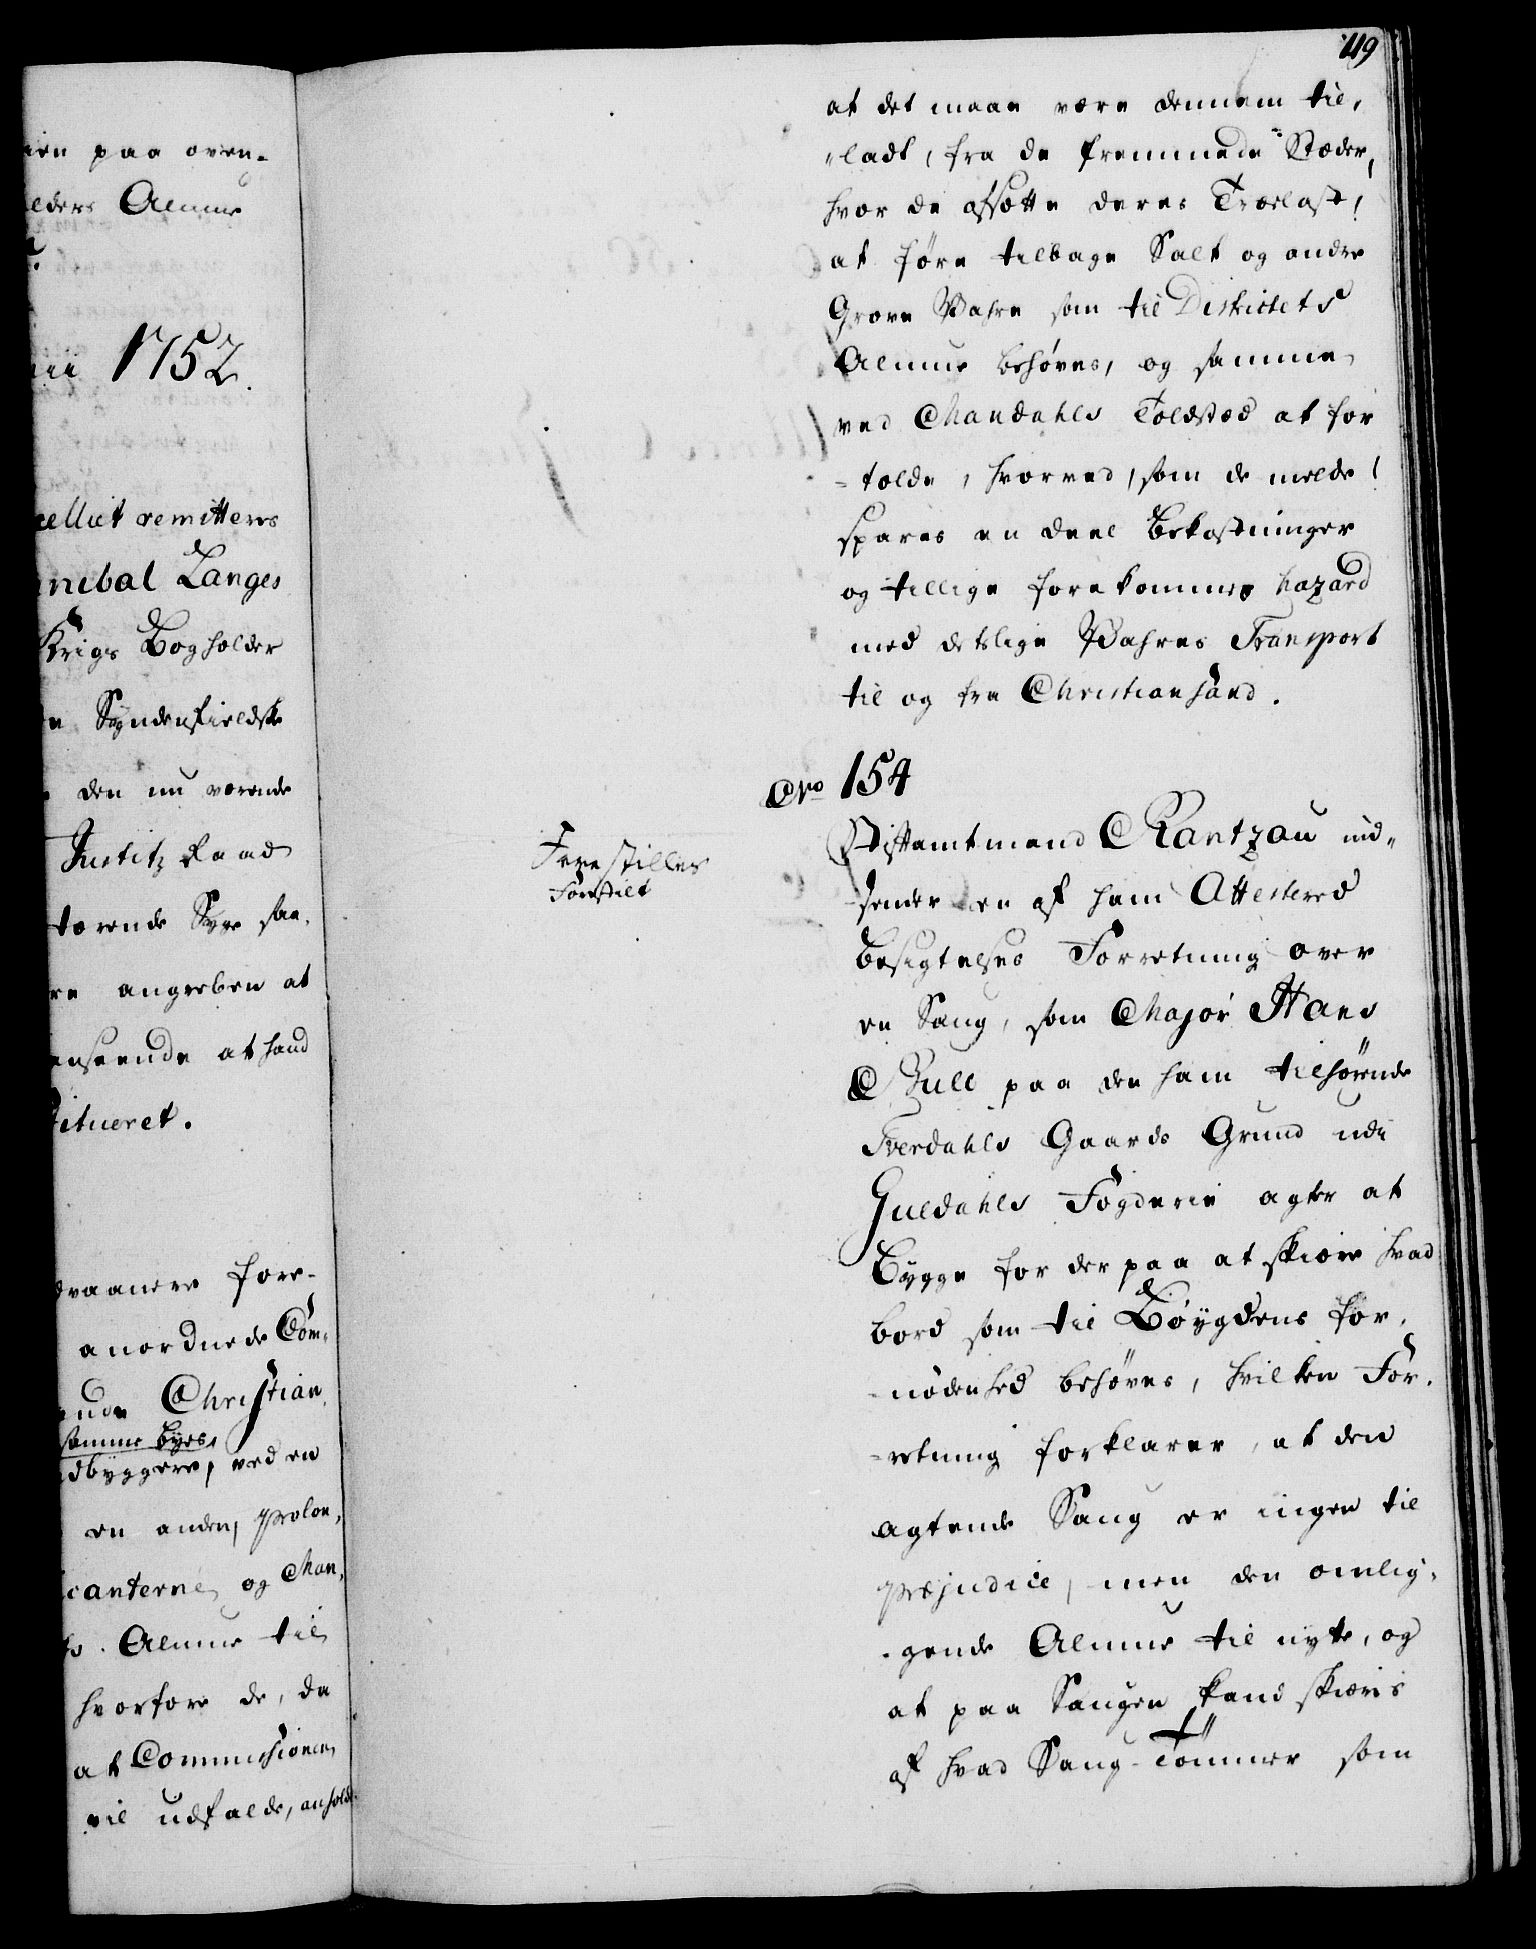 ien paa oven-
elders Almue
nii 1752.
cellict remitteres
nnibal Langes
Krigs Bogholder
n Syndenfieldske
den nu værende
Justitz Raad
tærende Syge saa-
re angreben at
enseende at hand
titueret.
dvaanere fore-
anordnede Com-
ende Christian
samme Byes
dbyggere, ved en
en anden, prolon-
canterne og Man-
ts. Almue til
hvorfore de, da
at Commissionen
vil udfalde, anhold-
119
at det maae være dennem til-
-ladt, fra de fremmede Stæder,
hvor de afsætte deres Trælast,
at føre tilbage Salt og andre
Grove Wahre som til Districtets
Almue behøves, og samme
ved Mandahls Toldsted at for
-tolde, hvorved, som de melde!
spares en deel Bekostninger
og tillige forekommes hazard
med deslige Wahres Transport
til og fra Christiansand.
No 154
Forestilles
Forestilt
Stiftamtmand Rantzau ind-
-sender en af ham Attestered
Besigtelses Forretning over
en Saug, som Major Hans
Bull paa den ham tilhørende
Sverdahls Gaards Grund udi
Guldahls Fogderie agter at
Bygge for der paa at skiære hvad
bord som til Bøygdens for-
-nødenhed behøves, hvilken For-
-retning forklarer, at den
agtende Saug er ingen til
præjudice, men den omlig-
-gende Almue til nytte, og
at paa Saugen kand skiæris
af hvad Saug-Tømmer som